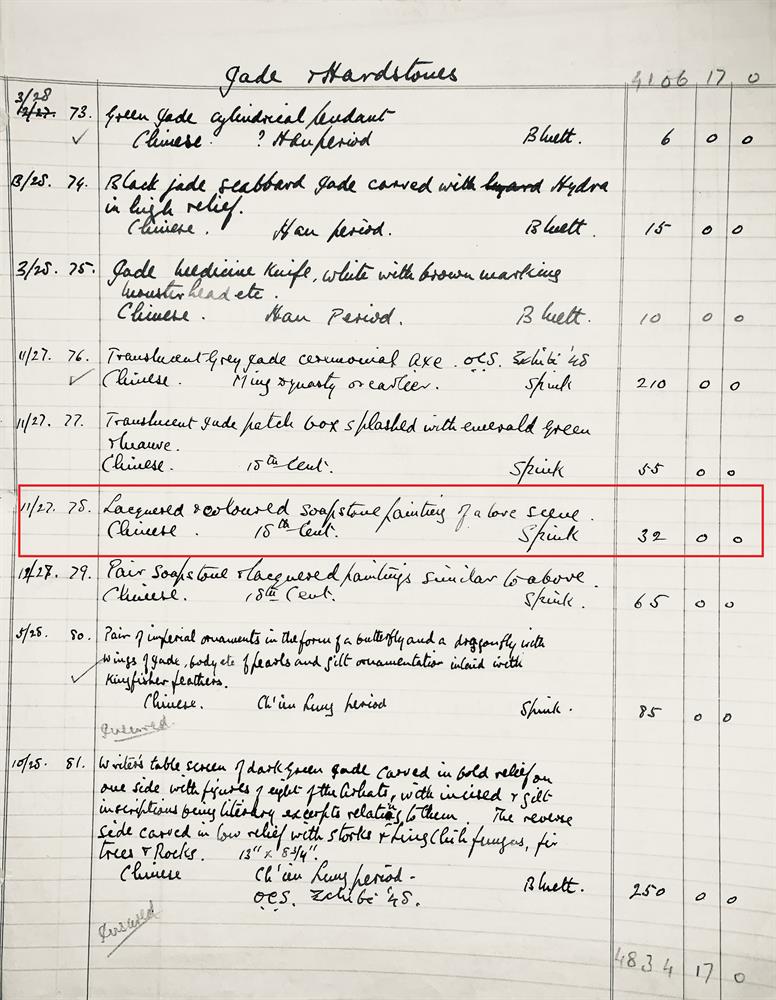 Jade & Hardstones 4106 17 0
3/28
12/27. 73. Green Jade cylindrical pendant
Chinese. ? Han period Bluett. 6 0 0
3/28. 74. Black jade scabbard Jade carved with lizard Hydra
in high relief.
Chinese. Han period. Bluett. 15 0 0
3/28. 75. Jade medicine knife, white with brown marking
monster head etc.
Chinese. Han Period. Bluett. 10 0 0
11/27. 76. Translucent Grey Jade ceremonial axe. O.C.S. Exhibi '48
Chinese. Ming dynasty or earlier. Spink 210 0 0
11/27. 77. Translucent Jade patch box splashed with emerald green
& mauve.
Chinese. 18th Cent. Spink 55 0 0
11/27. 78. Lacquered & coloured soapstone painting of a love scene.
Chinese. 18th Cent. Spink 32 0 0
12/27. 79. Pair Soapstone & lacquered paintings similar to above.
Chinese. 18th Cent. Spink. 65 0 0
5/28. 80. Pair of imperial ornaments in the form of a butterfly and a dragonfly with
wings of jade, body etc of pearls and gilt ornamentation inlaid with
Kingfisher feathers.
Chinese. Ch'ien Lung period Spink. 85 0 0
Insured.
10/28. 81. Writer's table screen of dark green Jade carved in bold relief on
one side with figures of eight of the Arhats, with incised & gilt
inscriptions being literary excerpts relating to them. The reverse
side carved in low relief with storks & Ling Chih fungus, fir
trees & Rocks. 13" x 8 3/4".
Chinese Ch'ien Lung period -
O.C.S. Exhibi '48. Bluett. 250 0 0
Insured
4834 17 0